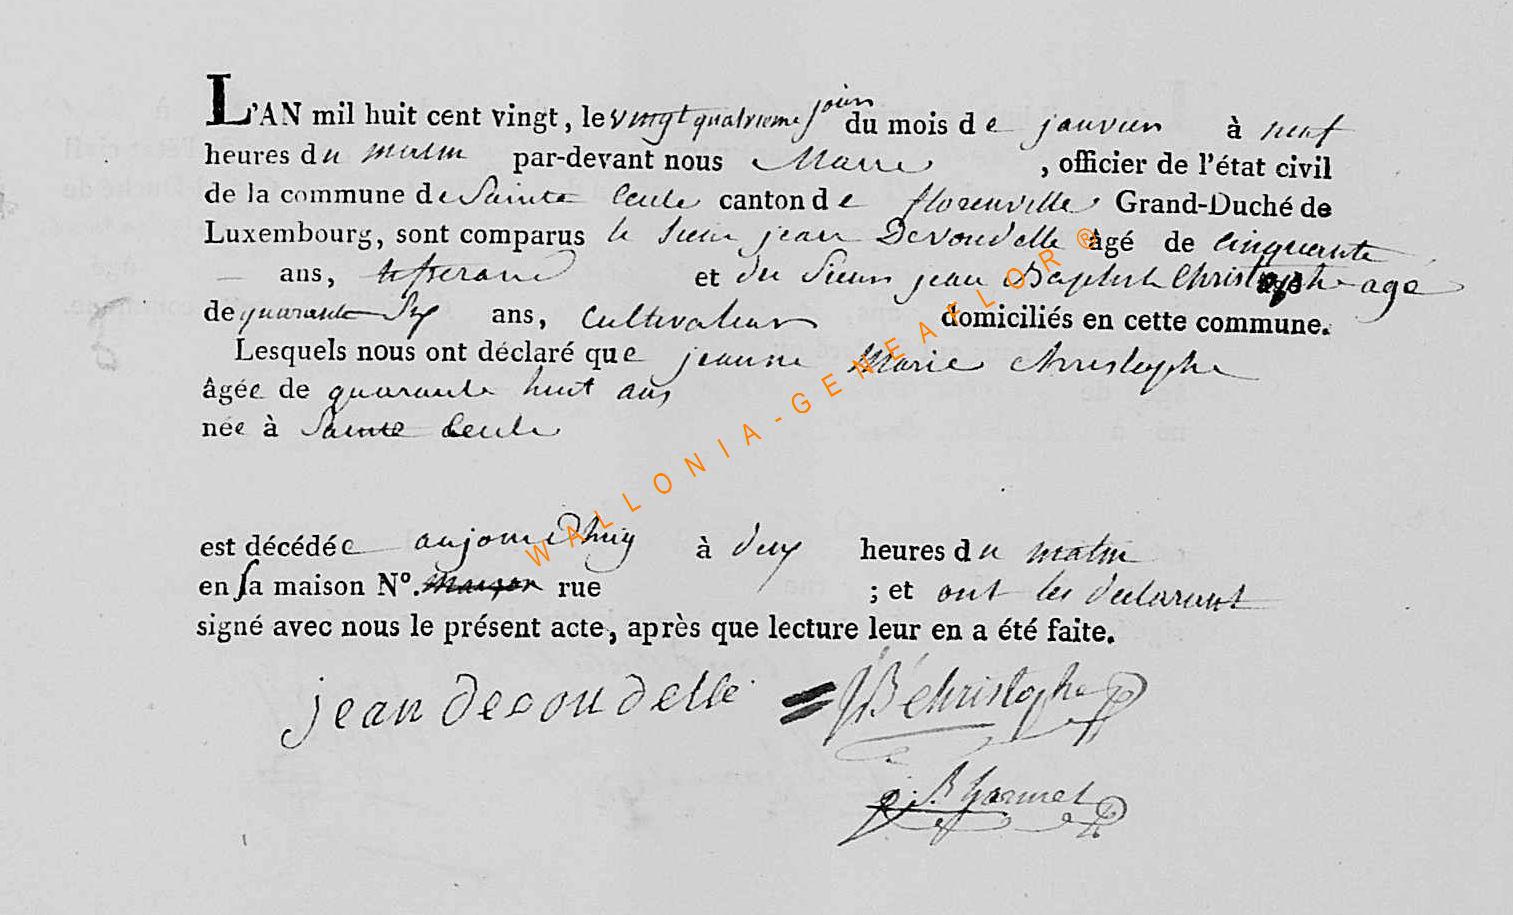 L'AN mil huit cent vingt, le vingt quatrieme jour du mois de janvier à neuf
heures du matin par-devant nous Maire, officier de l'état civil
de la commune de Sainte Cecile canton de florenville Grand-Duché de
Luxembourg, sont comparus le sieur jean Decoudelle âgé de cinquante
— ans, tisserand et du sieur jean Baptiste Christophe age
de quarante six ans, cultivateur domiciliés en cette commune.
Lesquels nous ont déclaré que jeanne Marie christophe
âgée de quarante huit ans
née à Sainte Cecile
est décédée aujourdhuy à deux heures du matin
en sa maison N°. rue ; et ont les declarant
signé avec nous le présent acte, après que lecture leur en a été faite.
jean decoudelle = JB christophe
WALLONIA-GENEAFLOR®